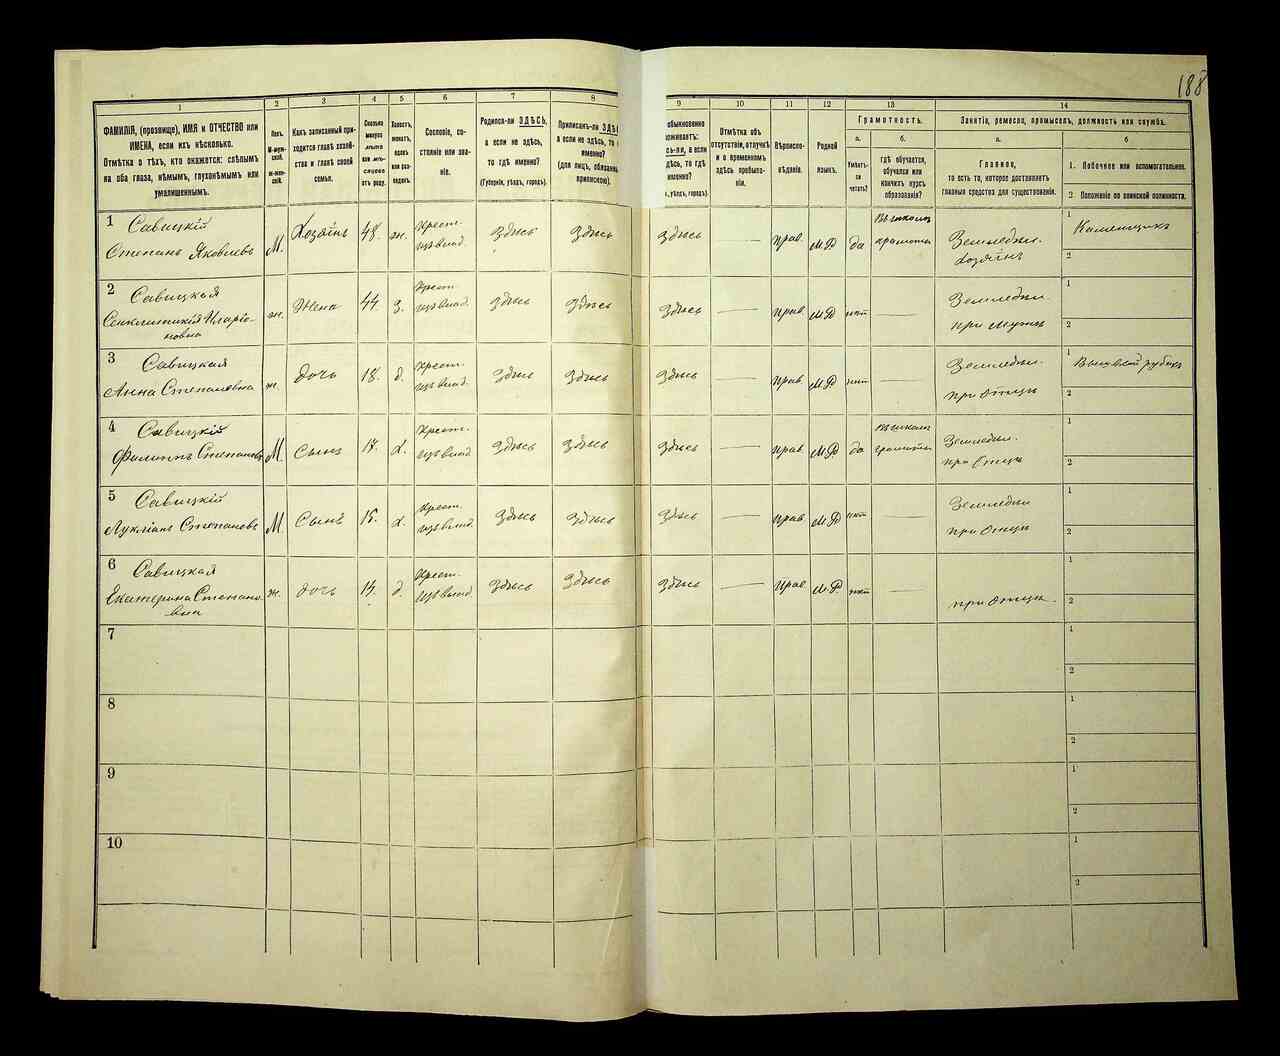 188
1
2
3
4
5
6
7
8
9
10
11
12
13
14
ФАМИЛІЯ, (прозвище), ИМЯ и ОТЧЕСТВО или
ИМЕНА, если ихъ нѣсколько.
Отмѣтка о тѣхъ, кто окажется: слѣпымъ
на оба глаза, нѣмымъ, глухонѣмымъ или
умалишеннымъ.
Полъ.
М-муж-
ской.
Ж-жен-
скій.
Какъ записанный при-
ходится главѣ хозяй-
ства и главѣ своей
семьи.
Сколько
минуло
лѣтъ
или мѣ-
сяцевъ
отъ роду.
Холостъ,
женатъ,
вдовъ
или раз-
веденъ.
Сословіе, со-
стояніе или зва-
ніе.
Родился-ли ЗДѢСЬ,
а если не здѣсь,
то гдѣ именно?
(Губернія, уѣздъ, городъ).
Приписанъ-ли ЗДѢ
а если не здѣсь, то
именно?
(для лицъ, обязанн
припискою).
обыкновенно
оживаетъ:
сь-ли, а если
дѣсь, то гдѣ
именно?
, уѣздъ, городъ).
Отмѣтка объ
отсутствіи, отлучкѣ
и о временномъ
здѣсь пребыва-
ніи.
Вѣроиспо-
вѣданіе.
Родной
языкъ.
Грамотность.
а.
б.
Умѣетъ-
ли
читать?
гдѣ обучается,
обучался или
кончилъ курсъ
образованія?
Занятіе, ремесло, промыселъ, должность или служба.
а.
б
Главное,
то есть то, которое доставляетъ
главныя средства для существованія.
1. Побочное или вспомогательное.
2 Положеніе по воинской повинности.
1 Савицкій
Степанъ Яковлевъ
М.
Хозяинъ
48.
ж.
Крест.
изъ влад.
Здѣсь
Здѣсь
Здѣсь
—
прав.
М.Р
да
въ школѣ
грамоты
Земледѣл.
хозяинъ
1
Каменщикъ
2
2 Савицкая
Синклитикія Иларіо-
новна
ж.
Жена
44.
З.
Крест.
изъ влад.
Здѣсь
Здѣсь
Здѣсь
—
прав.
М.Р
нѣт
—
Земледѣл.
при мужѣ
1
2
3 Савицкая
Анна Степановна
ж.
дочь
18.
д.
Крест.
изъ влад.
Здѣсь
Здѣсь
Здѣсь
—
прав.
М.Р
нѣт
—
Земледѣл.
при Отцѣ
1
2
4 Савицкій
Филиппъ Степановъ
М.
Сынъ
17.
Х.
Крест.
изъ влад.
Здѣсь
Здѣсь
Здѣсь
—
прав.
М.Р
да
въ школѣ
грамоты
Земледѣл.
при Отцѣ
1
2
5 Савицкій
Лукіанъ Степановъ
М
Сынъ
15.
Х
Крест.
изъ влад.
Здѣсь
Здѣсь
Здѣсь
—
прав.
М.Р
нѣт
—
Земледѣл
при Отцѣ
1
2
6 Савицкая
Екатерина Степано-
вна
ж.
дочь
д.
Крест.
изъ влад.
Здѣсь
Здѣсь
Здѣсь
—
Прав.
М.Р.
нѣт
—
при Отцѣ.
1
2
7
1
2
8
1
2
9
1
2
10
1
2